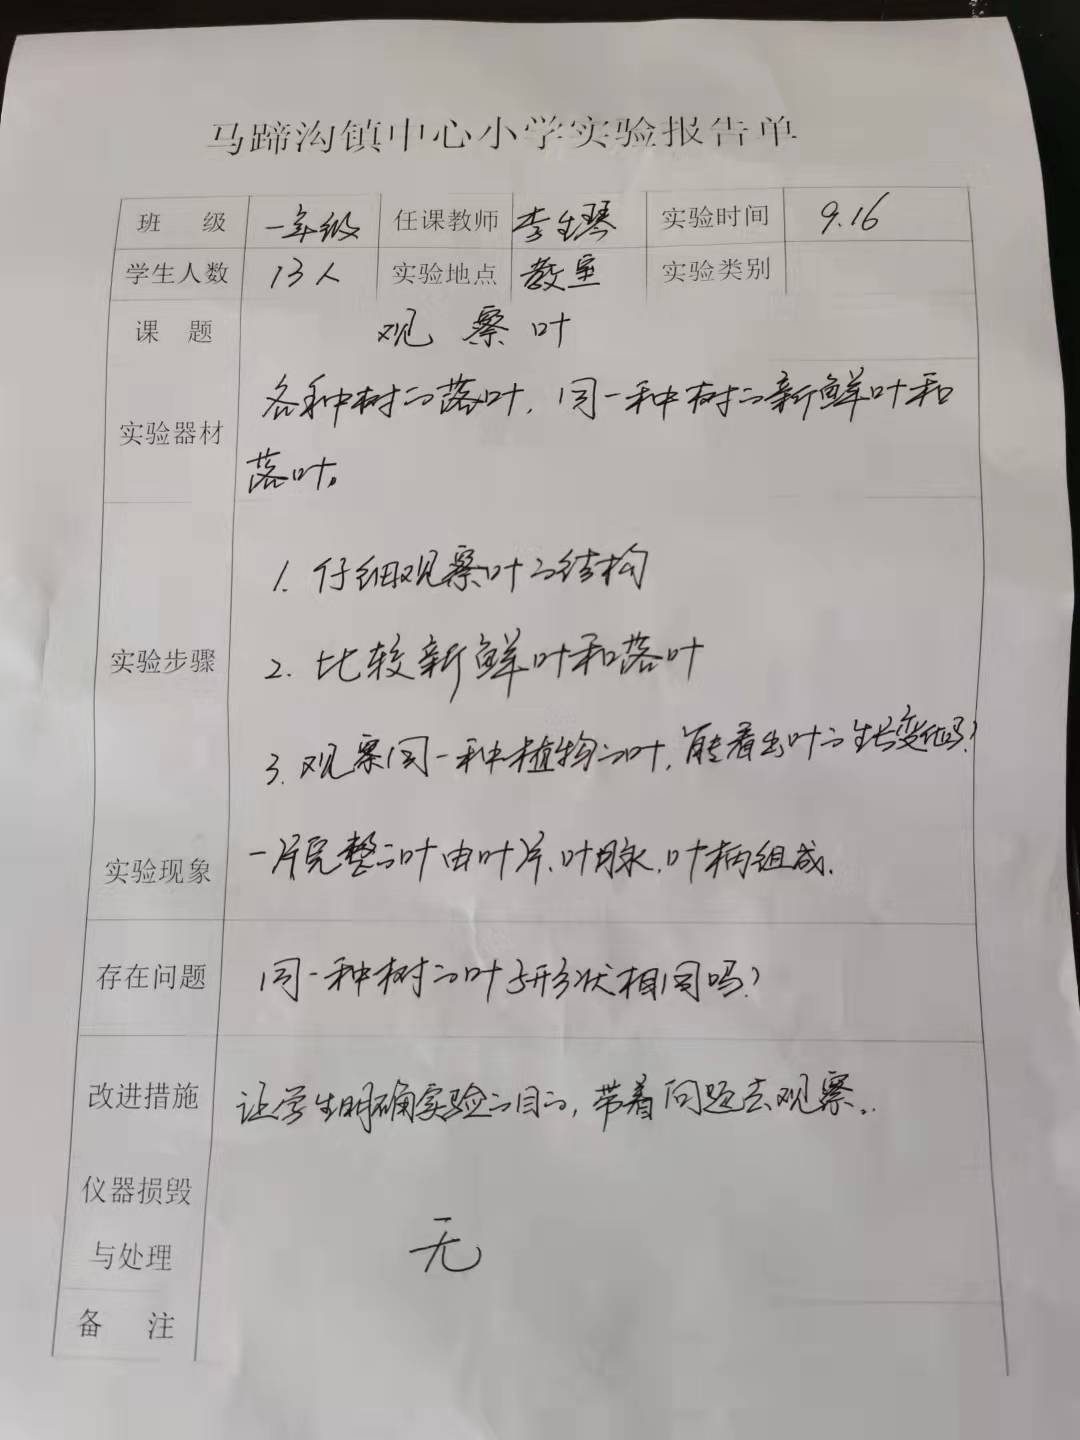 马蹄沟镇中心小学实验报告单
班 级 一年级 任课教师 李生琴 实验时间 9.16
学生人数 13人 实验地点 教室 实验类别
课 题 观察叶
实验器材 各种树的落叶,同一种树的新鲜叶和
落叶。
1. 仔细观察叶的结构
实验步骤 2. 比较新鲜叶和落叶
3. 观察同一种植物的叶,能看出叶的生长变化吗?
实验现象 一片完整的叶由叶片、叶脉、叶柄组成.
存在问题 同一种树的叶子形状相同吗?
改进措施 让学生明确实验的目的,带着问题去观察。
仪器损毁
与处理 无
备 注